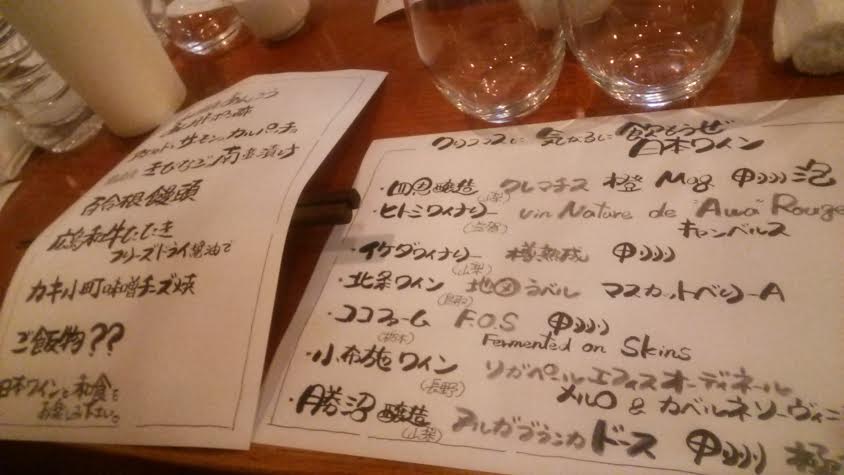 サーモンのカルパッチョ
きびなご南蛮漬け
百合根饅頭
広島和牛たたき
フリーズドライ醤油で
カキ小町味噌チーズ焼
ご飯物??
日本ワインと和食を
お楽しみ下さい。
気になるに 飲もうぜ
日本ワイン
・四恩醸造 クレマチス 橙 Mag 甲州 泡
(山梨)
・ヒトミワイナリー vin Nature de "Awa" Rouge
(滋賀) キャンベルス
・イケダワイナリー 樽熟成 甲州
(山梨)
・北条ワイン 地図ラベル マスカットベリーA
(鳥取)
・ココファーム F.O.S 甲州
(栃木) Fermented on Skins
・小布施ワイン リガペールエフィスオーディネール
(長野) メルロ & カベルネソーヴィニ
・勝沼醸造 アルガブランカ ドース 甲州 極
(山梨)